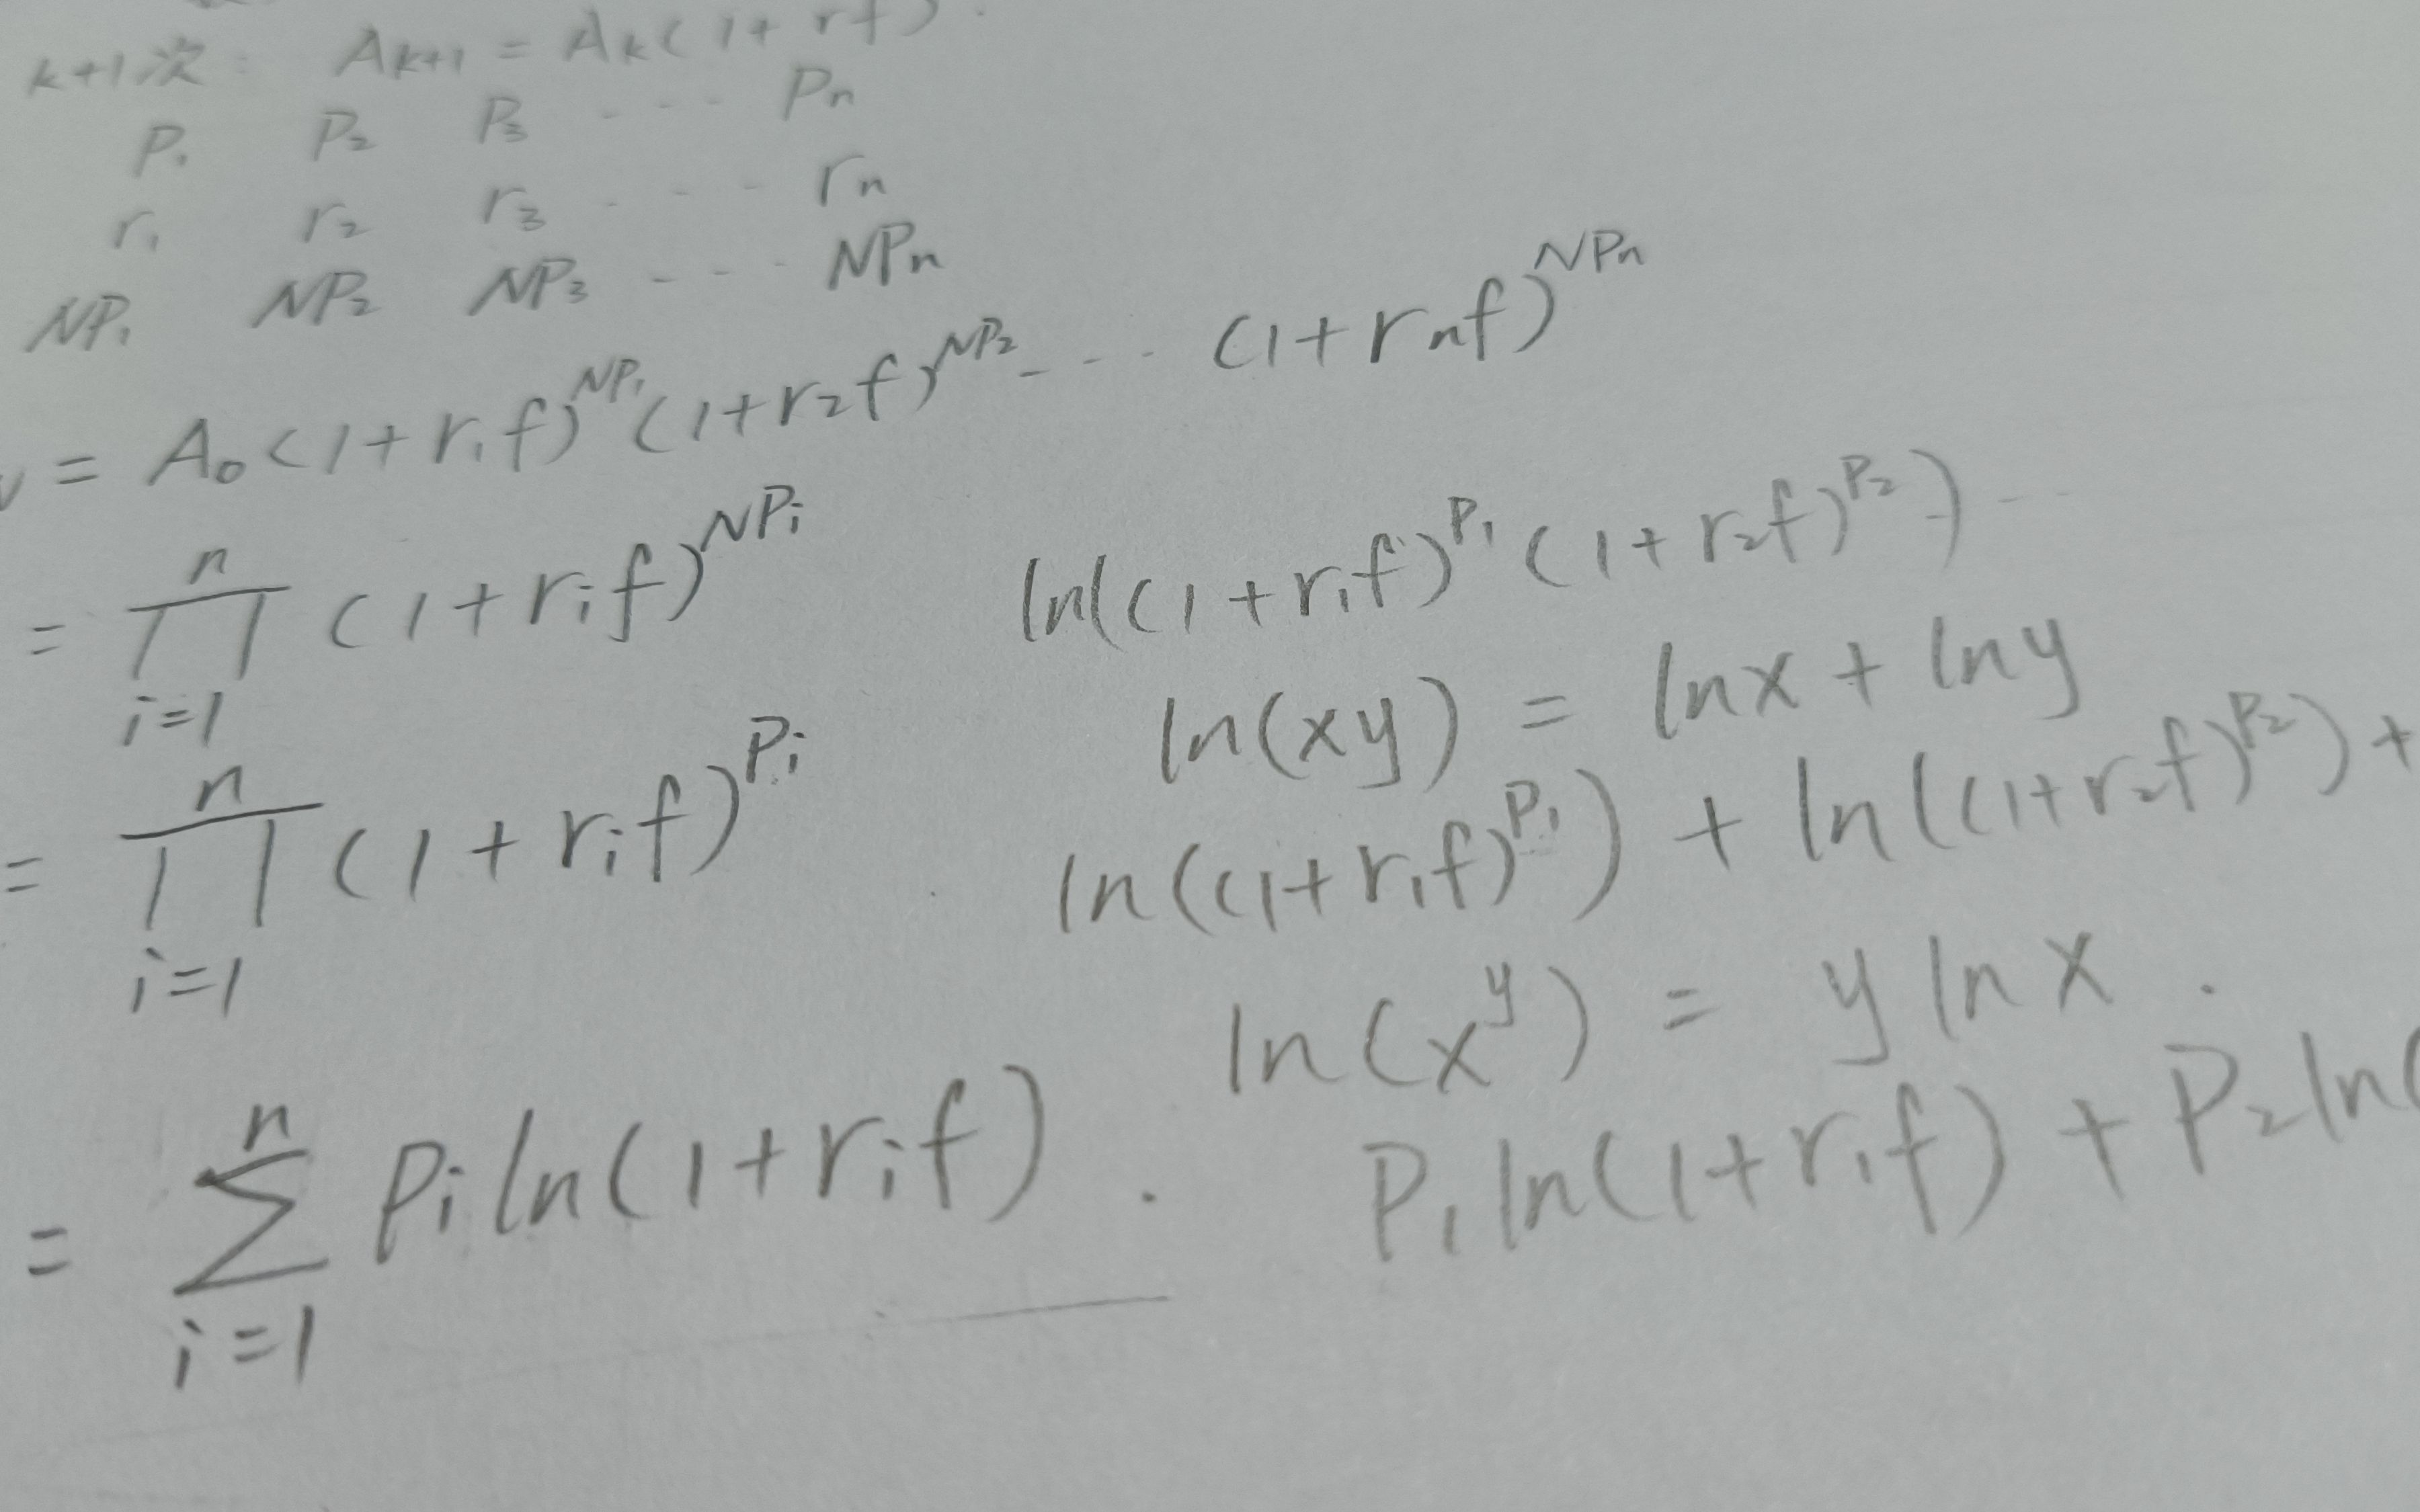 k+1次: A_{k+1} = A_k(1+rf).
P_1 P_2 P_3 ... P_n
r_1 r_2 r_3 ... r_n
NP_1 NP_2 NP_3 ... NP_n
= A_0(1+r_1f)^{NP_1}(1+r_2f)^{NP_2} ... (1+r_nf)^{NP_n}
= ∏_{i=1}^{n}(1+r_if)^{NP_i}
= ∏_{i=1}^{n}(1+r_if)^{P_i}
= ∑_{i=1}^{n} P_i ln(1+r_if).
ln((1+r_1f)^{P_1}(1+r_2f)^{P_2}) ...
ln(xy) = lnx + lny
ln((1+r_1f)^{P_1}) + ln((1+r_2f)^{P_2}) +
ln(x^y) = y ln x.
P_1 ln(1+r_1f) + P_2 ln(